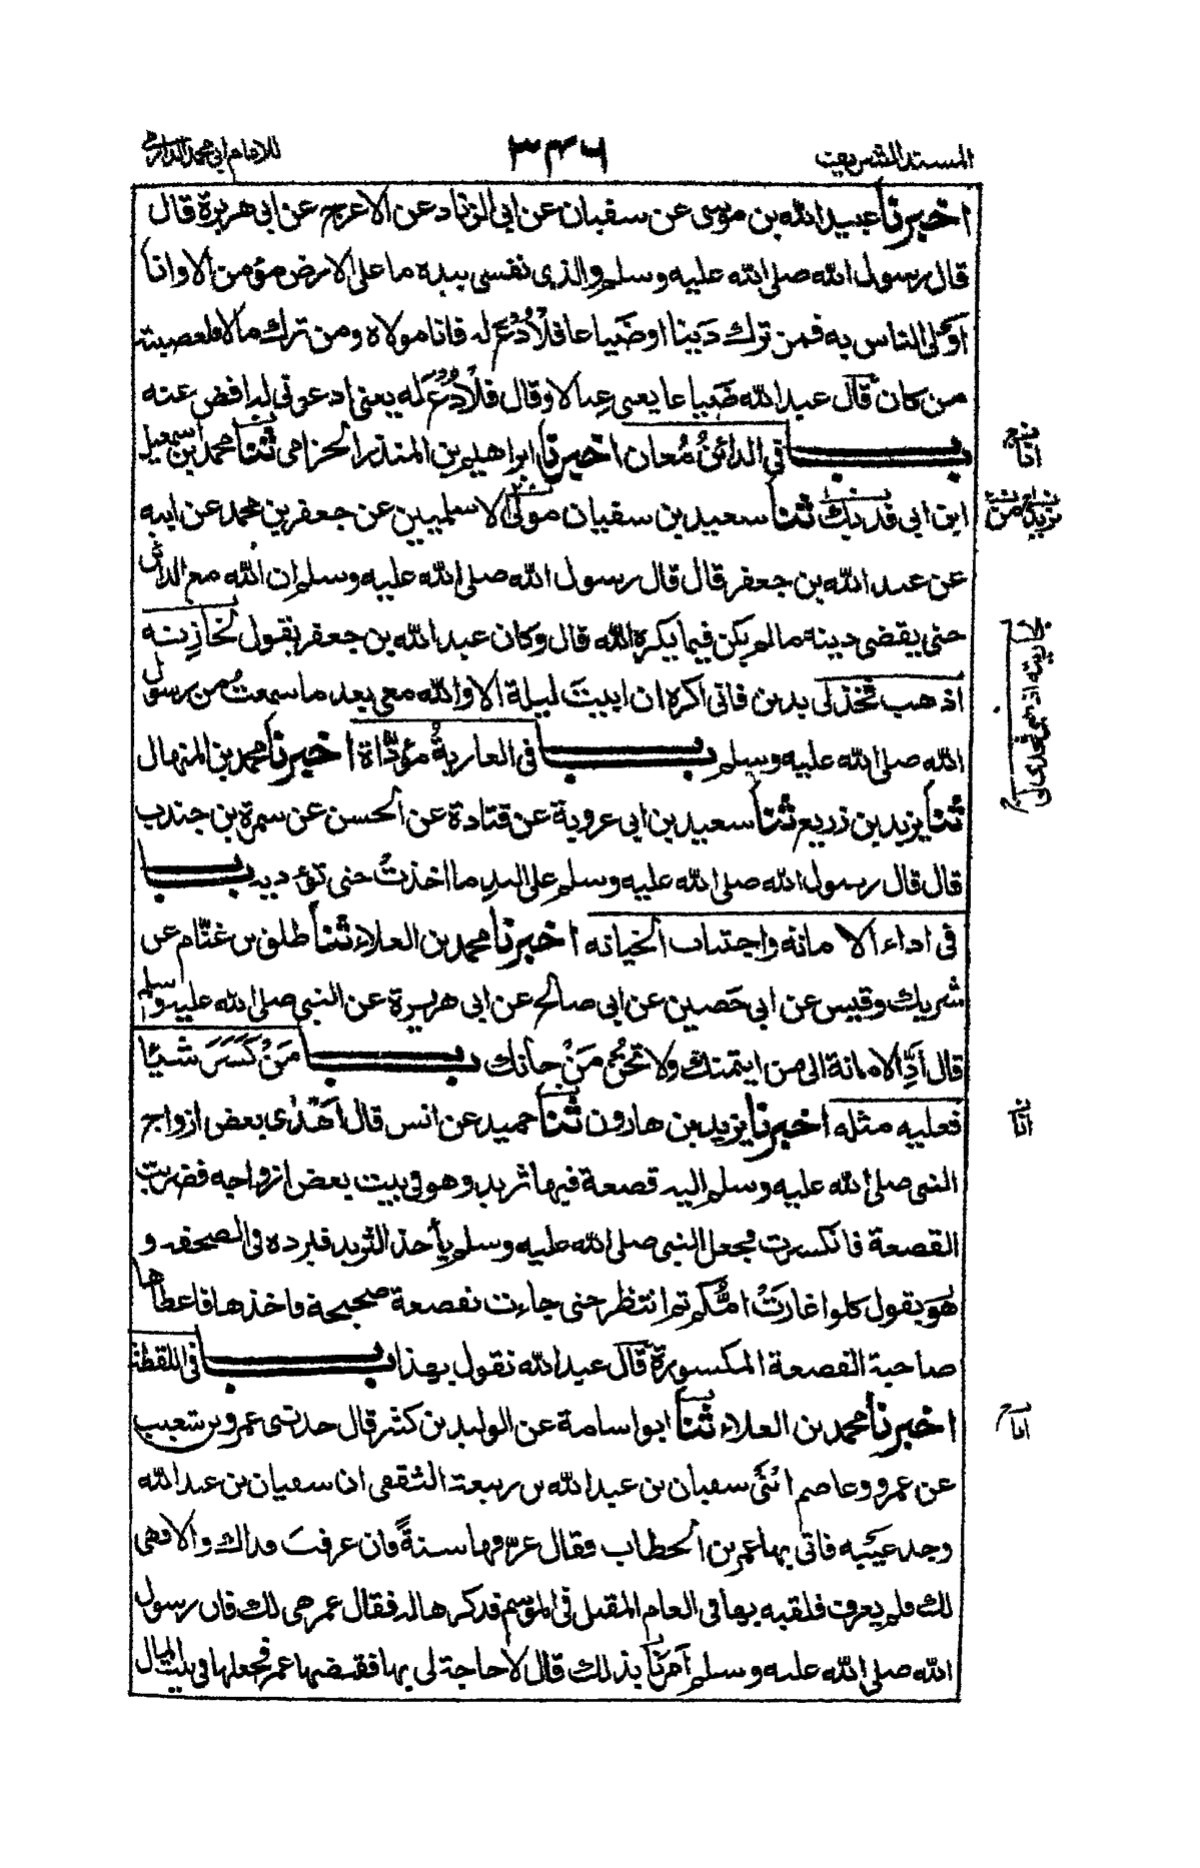 المسند الشريف
٣٤٦
للامام ابي محمد الدارمي
اخبرنا عبيد الله بن موسى عن سفيان عن ابي الزناد عن الاعرج عن ابي هريرة قال
قال رسول الله صلى الله عليه وسلم والذي نفسي بيده ما على الارض مؤمن الا وانا
اولى الناس به فمن ترك دينا او ضياعا فلأدع له فانا مولاه ومن ترك مالا فلعصبته
من كان قال عبد الله ضياعا يعني عيالا وقال فلأدع له يعني ادعوني له افض عنه
باب في الدائن معان اخبرنا ابراهيم بن المنذر الحزامي ثنا محمد بن اسمعيل
ابن ابي فديك ثنا سعيد بن سفيان مولى الاسلميين عن جعفر بن محمد عن ابيه
عن عبد الله بن جعفر قال قال رسول الله صلى الله عليه وسلم ان الله مع الدائن
حتى يقضى دينه ما لم يكن فيما يكره الله قال وكان عبد الله بن جعفر يقول لخازنه
اذهب فخذ لي بدين فاني اكره ان ابيت ليلة الا والله معي بعد ما سمعت من رسول
الله صلى الله عليه وسلم باب في العارية مؤداة اخبرنا محمد بن المنهال
ثنا يزيد بن زريع ثنا سعيد بن ابي عروبة عن قتادة عن الحسن عن سمرة بن جندب
قال قال رسول الله صلى الله عليه وسلم على اليد ما اخذت حتى تؤديه باب
في اداء الامانة واجتناب الخيانه اخبرنا محمد بن العلاء ثنا طلق بن غنام عن
شريك وقيس عن ابي حصين عن ابي صالح عن ابي هريرة عن النبي صلى الله عليه وسلم
قال أدّ الامانة الى من ايتمنك ولا تخن من خانك باب من كسر شيئا
فعليه مثله اخبرنا يزيد بن هارون ثنا حميد عن انس قال اهدى بعض ازواج
النبي صلى الله عليه وسلم اليه قصعة فيها ثريد وهو في بيت بعض ازواجه فضربت
القصعة فانكسرت فجعل النبي صلى الله عليه وسلم يأخذ الثريد فيرده في الصحفه و
هو يقول كلوا غارت امكم ثم انتظر حتى جاءت بقصعة صحيحة فاخذها فاعطاها
صاحبة القصعة المكسورة قال عبد الله نقول بهذا باب في اللقطة
اخبرنا محمد بن العلاء ثنا ابو اسامة عن الوليد بن كثير قال حدثني عمرو بن شعيب
عن عمرو وعاصم ابني سفيان بن عبد الله بن ربيعة الثقفي ان سفيان بن عبد الله
وجد عيبه فاتى بها عمر بن الخطاب فقال عرفها سنة فان عرفت فذاك والا فهي
لك فلم يعرف فلقيه بها في العام المقبل في الموسم فذكرها له فقال عمر هي لك فان رسول
الله صلى الله عليه وسلم امرنا بذلك قال لا حاجة لي بها فقبضها عمر فجعلها في بيت المال